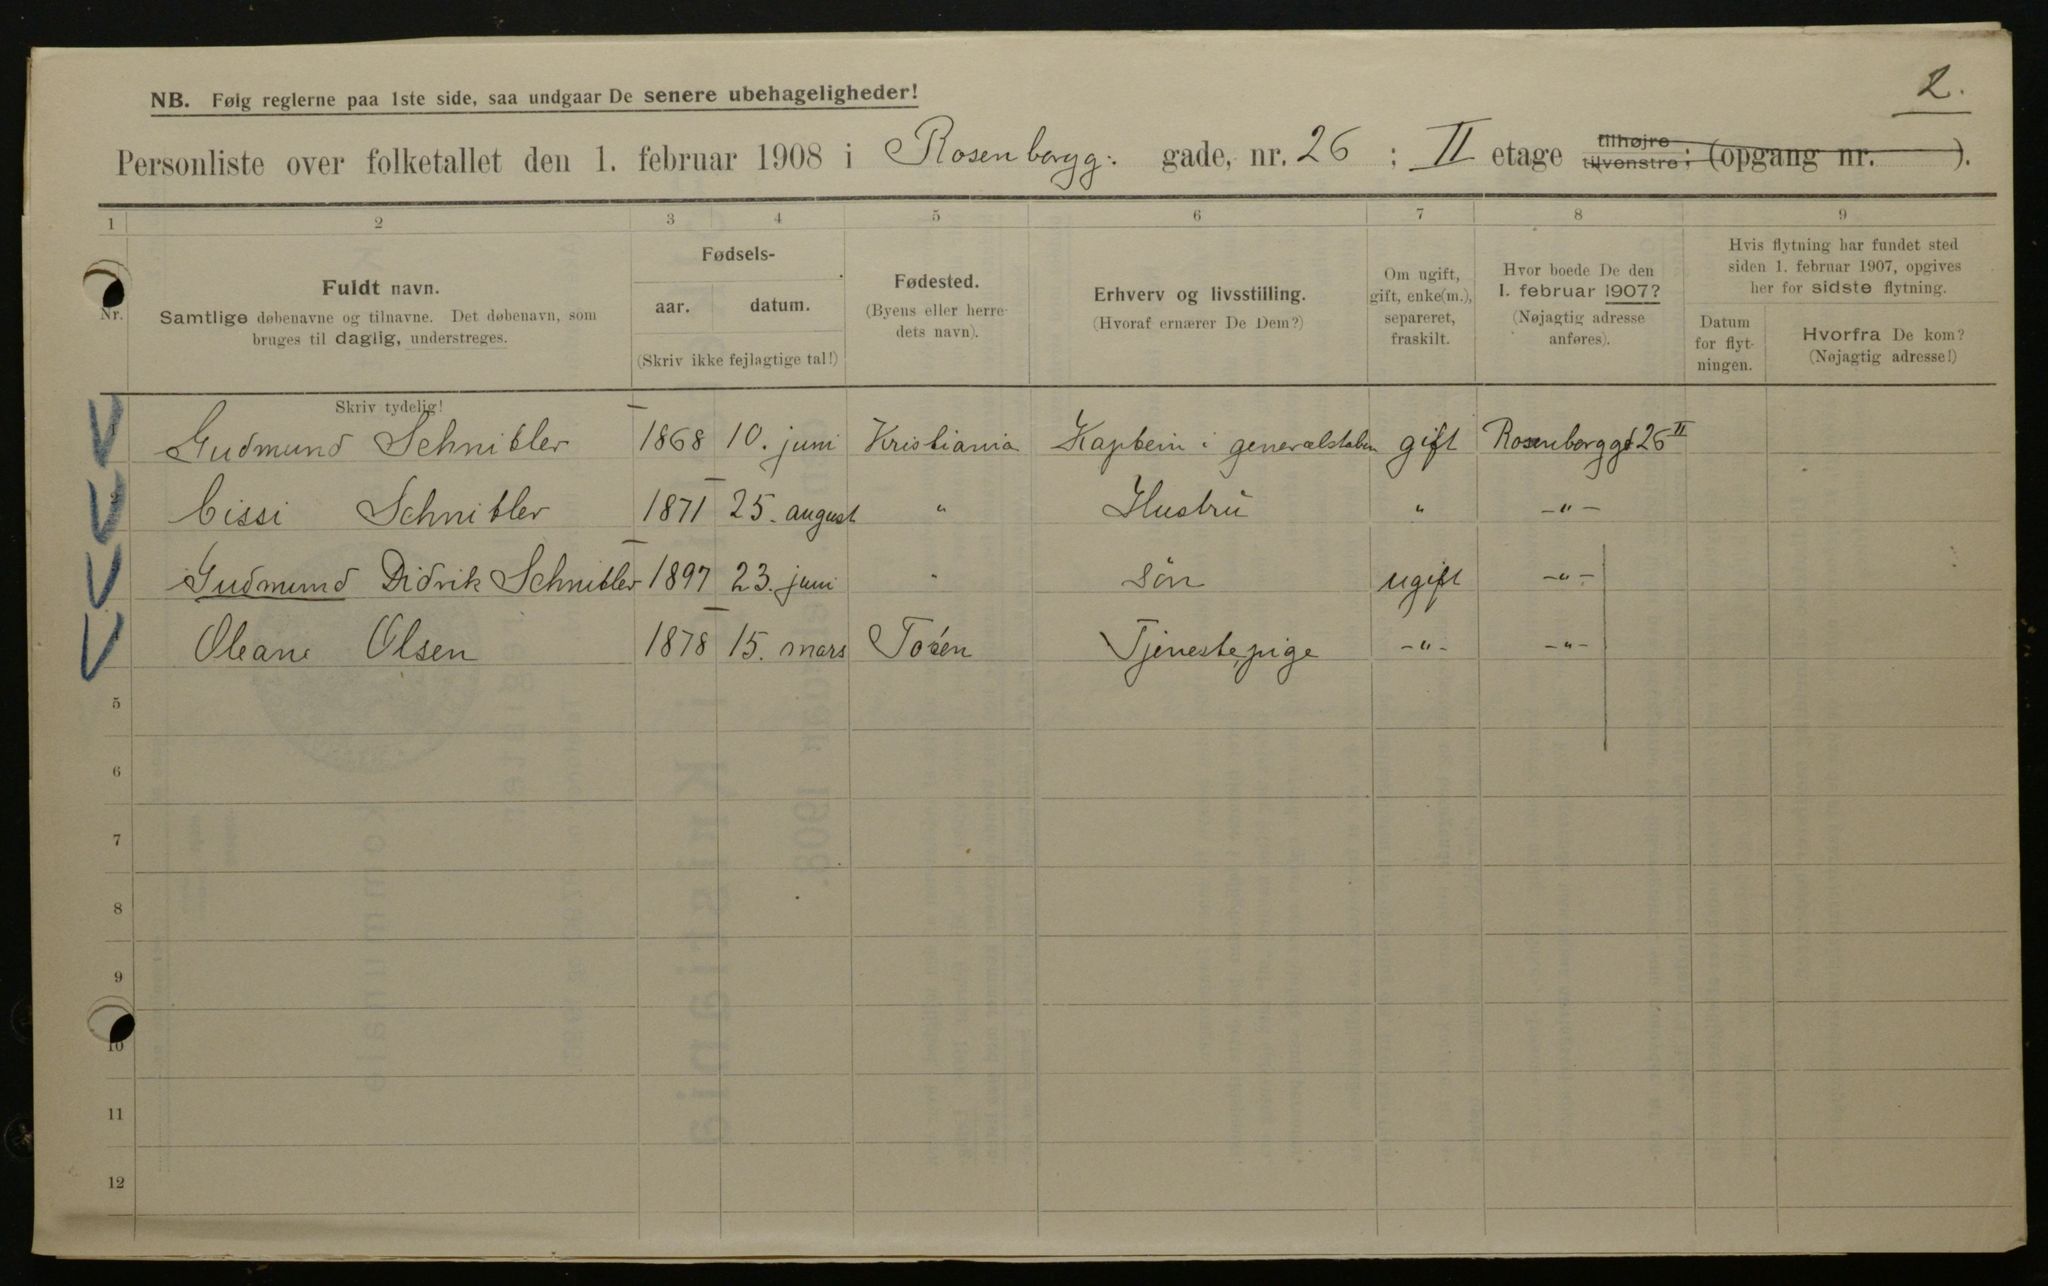 2.
NB. Følg reglerne paa 1ste side, saa undgaar De senere ubehageligheder!
Personliste over folketallet den 1. februar 1908 i Rosenborgg: gade, nr. 26 ; II etage tilhøjre tilvenstre; (opgang nr. ).
1 2 3 4 5 6 7 8 9
Nr.
Fuldt navn.
Samtlige døbenavne og tilnavne. Det døbenavn, som
bruges til daglig, understreges.
Skriv tydelig!
Fødsels-
aar. datum.
(Skriv ikke fejlagtige tal!)
Fødested.
(Byens eller herre-
dets navn).
Erhverv og livsstilling.
(Hvoraf ernærer De Dem?)
Om ugift,
gift, enke(m.),
separeret,
fraskilt.
Hvor boede De den
1. februar 1907?
(Nøjagtig adresse
anføres).
Hvis flytning har fundet sted
siden 1. februar 1907, opgives
her for sidste flytning.
Datum
for flyt-
ningen.
Hvorfra De kom?
(Nøjagtig adresse!)
Gudmund Schnitler 1868 10. juni Kristiania Kaptein i generalstaben gift Rosenborggt 26 II
Cissi Schnitler 1871 25. august " Hustru " -"-
Gudmund Didrik Schnitler 1897 23. juni " søn ugift -"-
Oleane Olsen 1878 15. mars Toten Tjenestepige -"- -"-
5
6
7
8
9
10
11
12